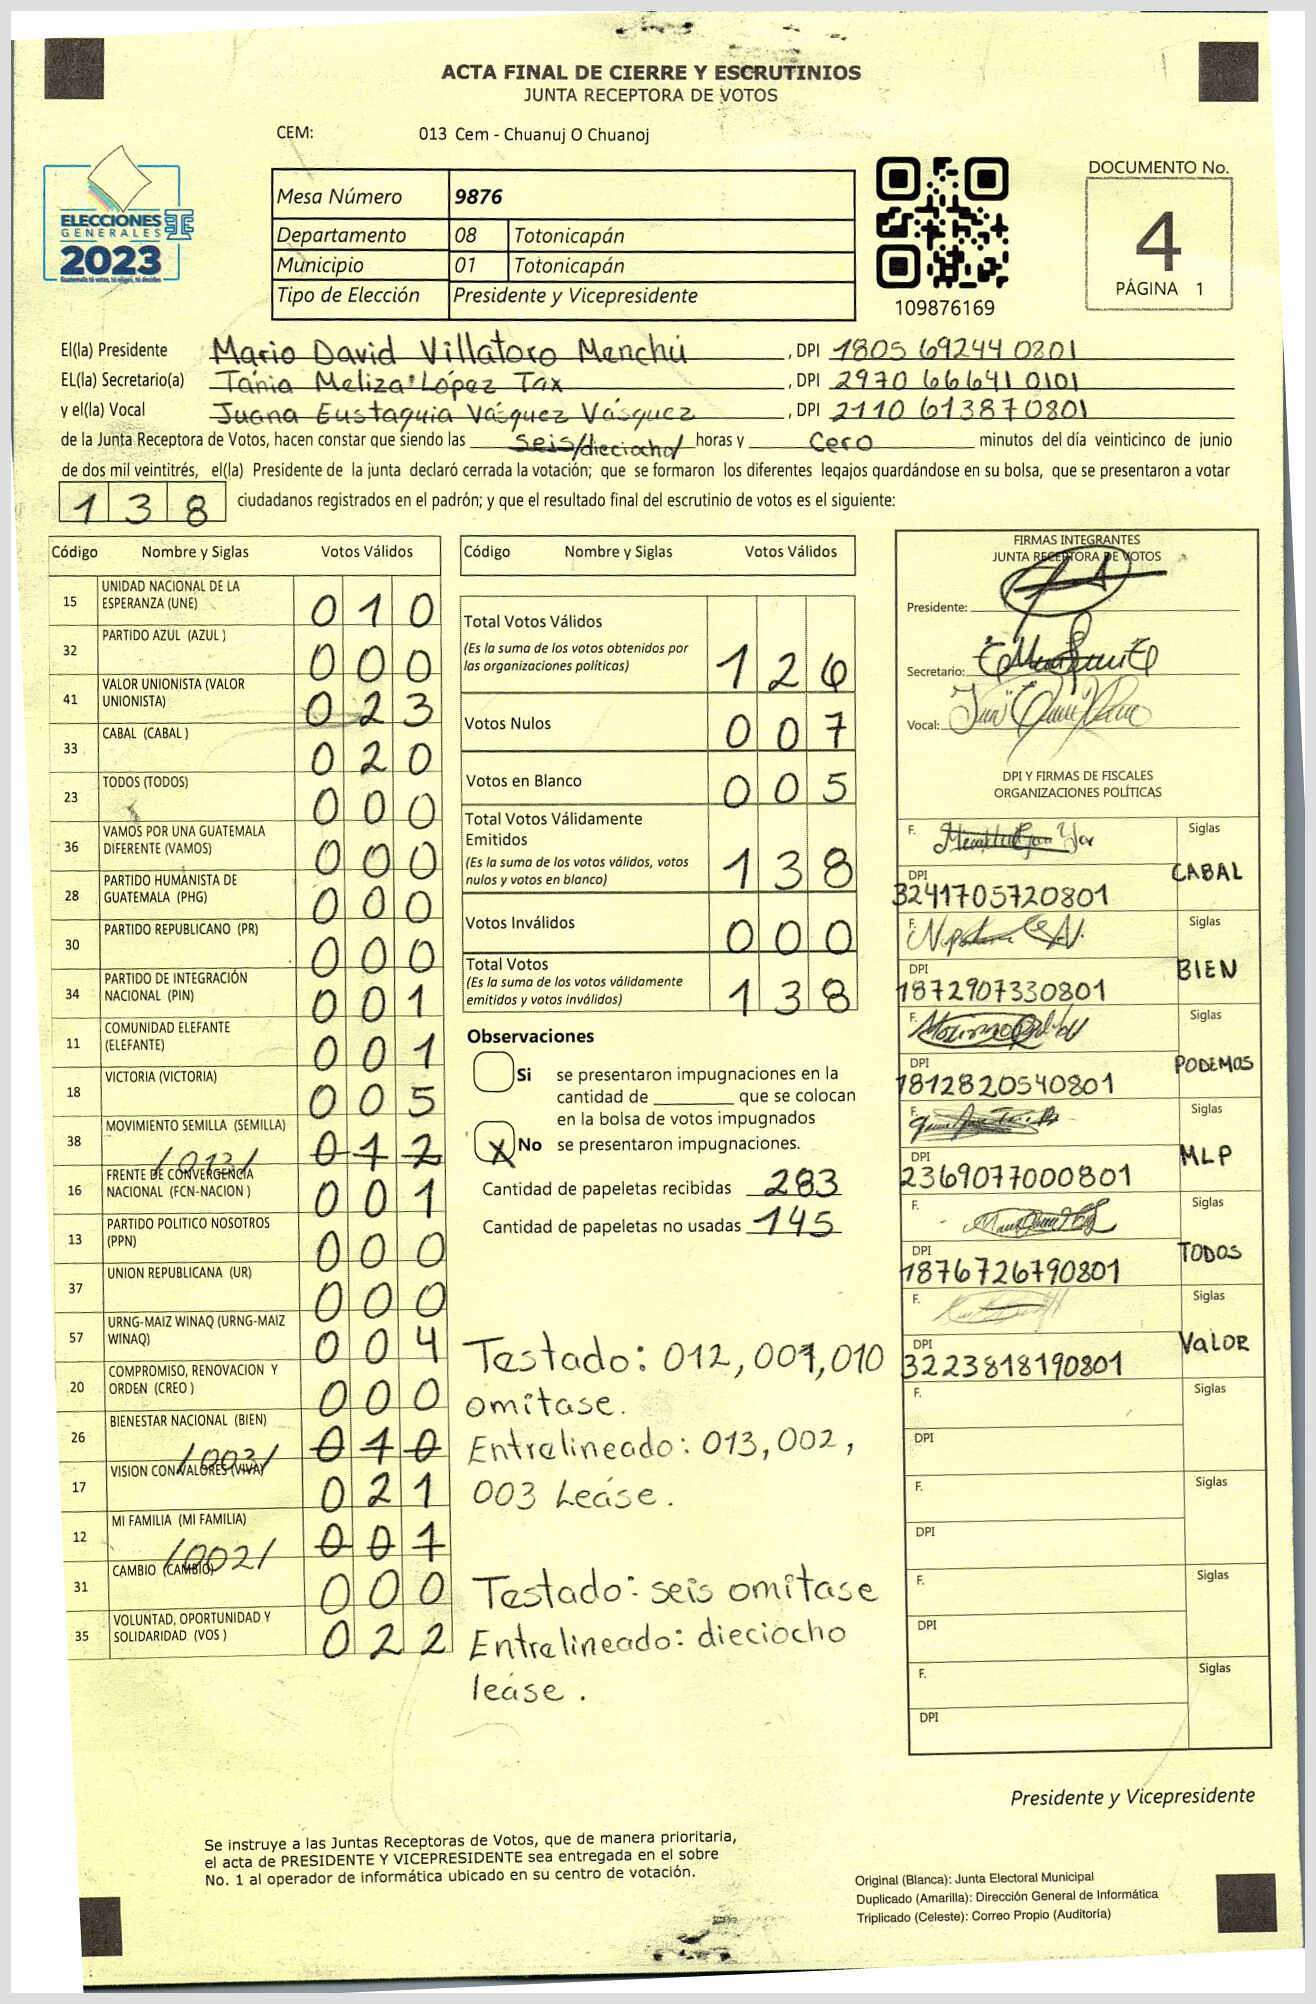 ACTA FINAL DE CIERRE Y ESCRUTINIOS
JUNTA RECEPTORA DE VOTOS
CEM: 013 Cem - Chuanuj O Chuanoj
ELECCIONES
GENERALES
2023
Guatemala tú votas, tú eliges, tú decides
Mesa Número 9876
Departamento 08 Totonicapán
Municipio 01 Totonicapán
Tipo de Elección Presidente y Vicepresidente
109876169
DOCUMENTO No.
4
PÁGINA 1
El(la) Presidente Mario David Villatoro Menchú , DPI 1805 69244 0801
EL(la) Secretario(a) Tania Meliza López Tax , DPI 2970 66641 0101
y el(la) Vocal Juana Eustaquia Vásquez Vásquez , DPI 2110 61387 0801
de la Junta Receptora de Votos, hacen constar que siendo las seis/dieciocho/ horas y cero minutos del día veinticinco de junio
de dos mil veintitrés, el(la) Presidente de la junta declaró cerrada la votación; que se formaron los diferentes legajos quardándose en su bolsa, que se presentaron a votar
138 ciudadanos registrados en el padrón; y que el resultado final del escrutinio de votos es el siguiente:
Código Nombre y Siglas Votos Válidos
15 UNIDAD NACIONAL DE LA
ESPERANZA (UNE) 010
32 PARTIDO AZUL (AZUL ) 000
41 VALOR UNIONISTA (VALOR
UNIONISTA) 023
33 CABAL (CABAL ) 020
23 TODOS (TODOS) 000
36 VAMOS POR UNA GUATEMALA
DIFERENTE (VAMOS) 000
28 PARTIDO HUMANISTA DE
GUATEMALA (PHG) 000
30 PARTIDO REPUBLICANO (PR) 000
34 PARTIDO DE INTEGRACIÓN
NACIONAL (PIN) 001
11 COMUNIDAD ELEFANTE
(ELEFANTE) 001
18 VICTORIA (VICTORIA) 005
38 MOVIMIENTO SEMILLA (SEMILLA) 012
/013/
16 FRENTE DE CONVERGENCIA
NACIONAL (FCN-NACION ) 001
13 PARTIDO POLITICO NOSOTROS
(PPN) 000
37 UNION REPUBLICANA (UR) 000
57 URNG-MAIZ WINAQ (URNG-MAIZ
WINAQ) 004
20 COMPROMISO, RENOVACION Y
ORDEN (CREO ) 000
26 BIENESTAR NACIONAL (BIEN) 010
/003/
17 VISION CON VALORES (VIVA) 021
12 MI FAMILIA (MI FAMILIA) 001
/002/
31 CAMBIO (CAMBIO) 000
35 VOLUNTAD, OPORTUNIDAD Y
SOLIDARIDAD (VOS ) 022
Código Nombre y Siglas Votos Válidos
Total Votos Válidos
(Es la suma de los votos obtenidos por
las organizaciones políticas) 126
Votos Nulos 007
Votos en Blanco 005
Total Votos Válidamente
Emitidos
(Es la suma de los votos válidos, votos
nulos y votos en blanco) 138
Votos Inválidos 000
Total Votos
(Es la suma de los votos válidamente
emitidos y votos inválidos) 138
Observaciones
Si se presentaron impugnaciones en la
cantidad de ________ que se colocan
en la bolsa de votos impugnados
X No se presentaron impugnaciones.
Cantidad de papeletas recibidas 283
Cantidad de papeletas no usadas 145
Testado: 012, 001, 010
omitase.
Entrelineado: 013, 002,
003 Léase.
Testado: seis omitase
Entrelineado: dieciocho
léase.
FIRMAS INTEGRANTES
JUNTA RECEPTORA DE VOTOS
Presidente:
Secretario:
Vocal:
DPI Y FIRMAS DE FISCALES
ORGANIZACIONES POLÍTICAS
F. Siglas
CABAL
DPI
3241705720801
F. Siglas
BIEN
DPI
1872907330801
F. Siglas
PODEMOS
DPI
1812820540801
F. Siglas
MLP
DPI
2369077000801
F. Siglas
TODOS
DPI
1876726790801
F. Siglas
VALOR
DPI
3223818190801
F. Siglas
DPI
F. Siglas
DPI
F. Siglas
DPI
F. Siglas
DPI
Presidente y Vicepresidente
Se instruye a las Juntas Receptoras de Votos, que de manera prioritaria,
el acta de PRESIDENTE Y VICEPRESIDENTE sea entregada en el sobre
No. 1 al operador de informática ubicado en su centro de votación.
Original (Blanca): Junta Electoral Municipal
Duplicado (Amarilla): Dirección General de Informática
Triplicado (Celeste): Correo Propio (Auditoría)